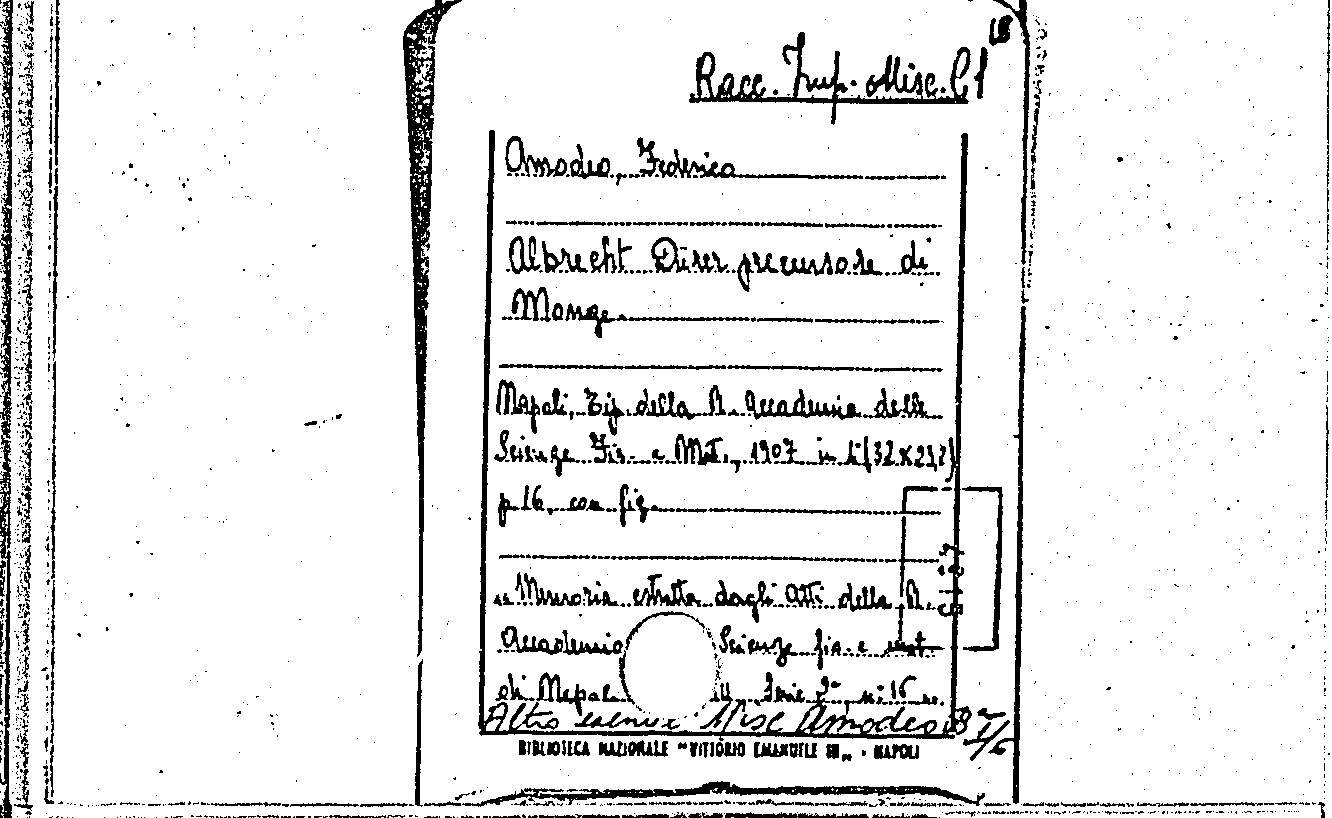 18
Racc. Imp. Misc. C1
Amodeo, Federico
Albrecht Dürer precursore di
Monge.
Napoli, Tip. della R. Accademia delle
Scienze Fis. e Mat., 1907 in 4° (32x23,7)
p. 16. con fig.
"Memoria estratta dagli Atti della R.
Accademia Scienze fis. e mat.
di Napoli Serie 2ª, n: 16
Altro esempl. Misc Amodeo B
BIBLIOTECA NAZIONALE "VITTORIO EMANUELE III„ - NAPOLI